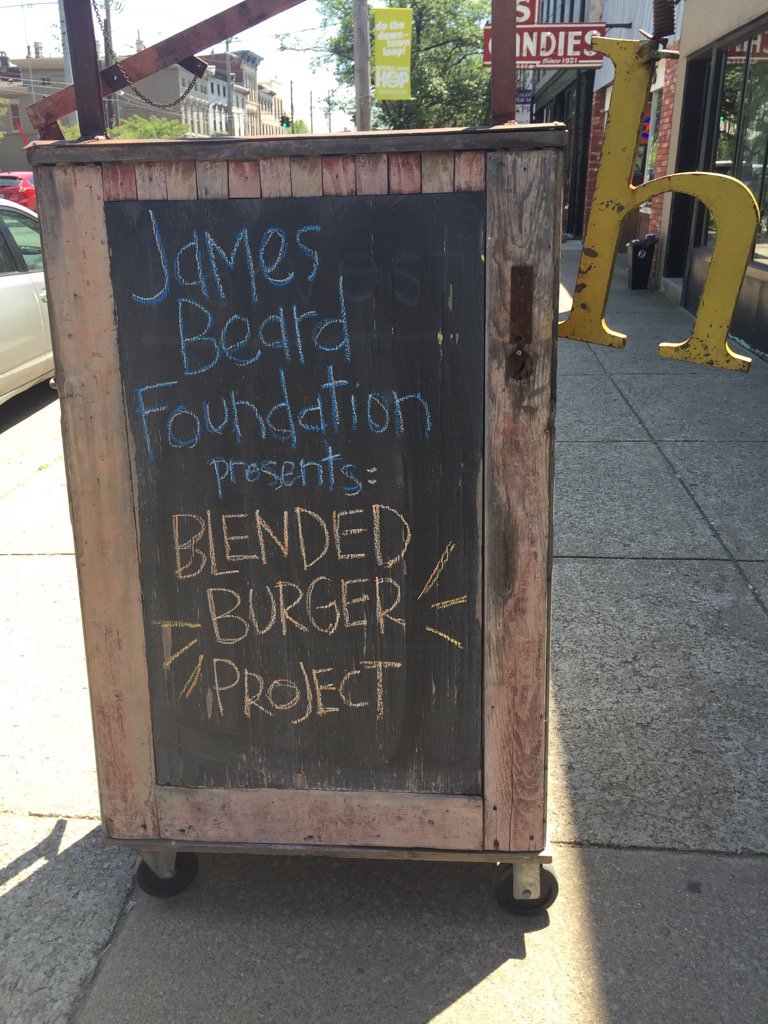 do the
down-
town
hop!
HOP
S
CANDIES
Since 1921
h
James
Beard
Foundation
presents:
BLENDED
BURGER
PROJECT